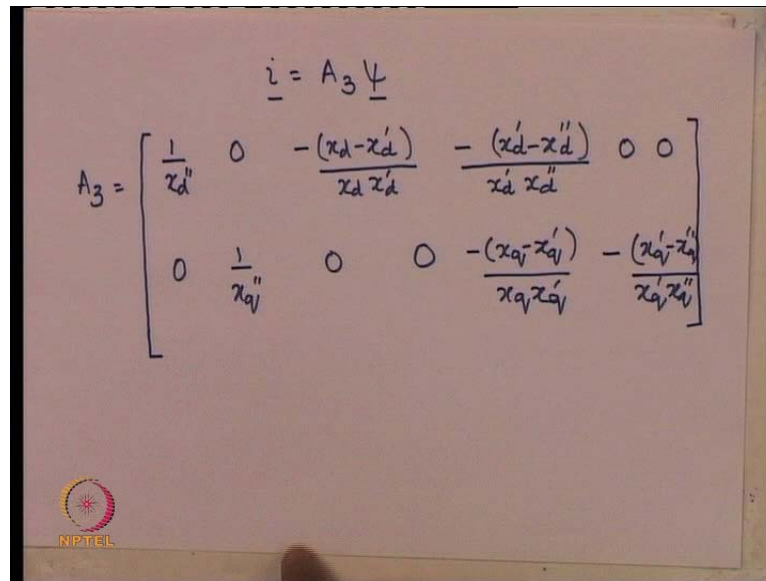 i = A₃ Ψ
A₃ = [ 1/x_d'' 0 -(x_d - x_d')/(x_d x_d') -(x_d' - x_d'')/(x_d' x_d'') 0 0
0 1/x_q'' 0 0 -(x_q - x_q')/(x_q x_q') -(x_q' - x_q'')/(x_q' x_q'') ]
NPTEL